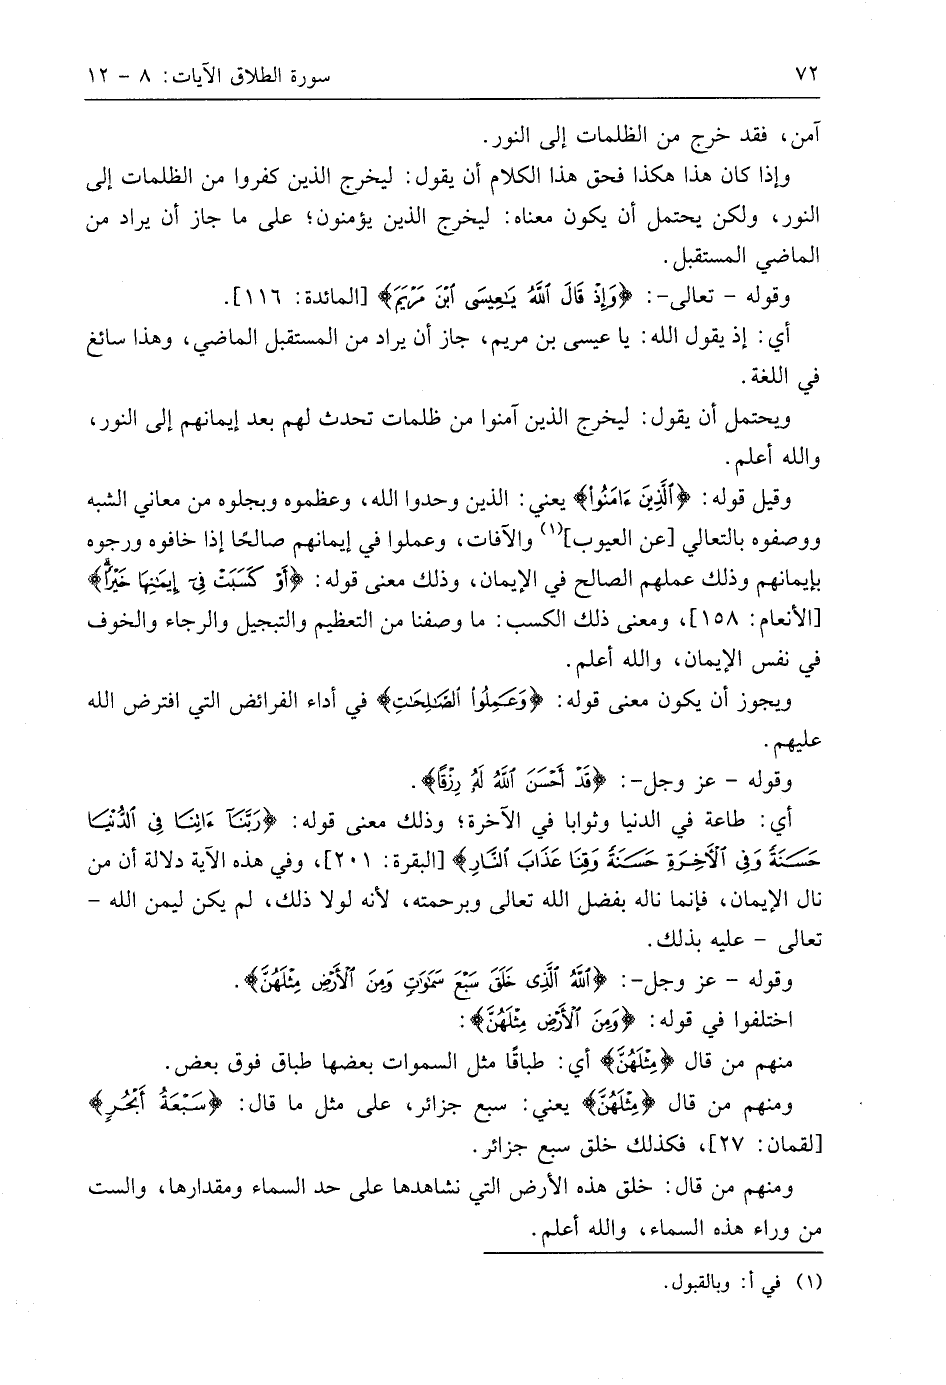 ٧٢ سورة الطلاق الآيات: ٨ - ١٢
آمن، فقد خرج من الظلمات إلى النور.
وإذا كان هذا هكذا فحق هذا الكلام أن يقول: ليخرج الذين كفروا من الظلمات إلى
النور، ولكن يحتمل أن يكون معناه: ليخرج الذين يؤمنون؛ على ما جاز أن يراد من
الماضي المستقبل.
وقوله - تعالى-: ﴿وَإِذْ قَالَ ٱللَّهُ يَـٰعِيسَى ٱبْنَ مَرْيَمَ﴾ [المائدة: ١١٦].
أي: إذ يقول الله: يا عيسى بن مريم، جاز أن يراد من المستقبل الماضي، وهذا سائغ
في اللغة.
ويحتمل أن يقول: ليخرج الذين آمنوا من ظلمات تحدث لهم بعد إيمانهم إلى النور،
والله أعلم.
وقيل قوله: ﴿ٱلَّذِينَ ءَامَنُوا۟﴾ يعني: الذين وحدوا الله، وعظموه وبجلوه من معاني الشبه
ووصفوه بالتعالي [عن العيوب](١) والآفات، وعملوا في إيمانهم صالحًا إذا خافوه ورجوه
بإيمانهم وذلك عملهم الصالح في الإيمان، وذلك معنى قوله: ﴿أَوْ كَسَبَتْ فِىٓ إِيمَـٰنِهَا خَيْرًۭا﴾
[الأنعام: ١٥٨]، ومعنى ذلك الكسب: ما وصفنا من التعظيم والتبجيل والرجاء والخوف
في نفس الإيمان، والله أعلم.
ويجوز أن يكون معنى قوله: ﴿وَعَمِلُوا۟ ٱلصَّـٰلِحَـٰتِ﴾ في أداء الفرائض التي افترض الله
عليهم.
وقوله - عز وجل-: ﴿قَدْ أَحْسَنَ ٱللَّهُ لَهُۥ رِزْقًا﴾.
أي: طاعة في الدنيا وثوابا في الآخرة؛ وذلك معنى قوله: ﴿رَبَّنَآ ءَاتِنَا فِى ٱلدُّنْيَا
حَسَنَةً وَفِى ٱلْـَٔاخِرَةِ حَسَنَةً وَقِنَا عَذَابَ ٱلنَّارِ﴾ [البقرة: ٢٠١]، وفي هذه الآية دلالة أن من
نال الإيمان، فإنما ناله بفضل الله تعالى وبرحمته، لأنه لولا ذلك، لم يكن ليمن الله -
تعالى - عليه بذلك.
وقوله - عز وجل-: ﴿ٱللَّهُ ٱلَّذِى خَلَقَ سَبْعَ سَمَـٰوَٰتٍ وَمِنَ ٱلْأَرْضِ مِثْلَهُنَّ﴾.
اختلفوا في قوله: ﴿وَمِنَ ٱلْأَرْضِ مِثْلَهُنَّ﴾:
منهم من قال ﴿مِثْلَهُنَّ﴾ أي: طباقًا مثل السموات بعضها طباق فوق بعض.
ومنهم من قال ﴿مِثْلَهُنَّ﴾ يعني: سبع جزائر، على مثل ما قال: ﴿سَبْعَةُ أَبْحُرٍ﴾
[لقمان: ٢٧]، فكذلك خلق سبع جزائر.
ومنهم من قال: خلق هذه الأرض التي نشاهدها على حد السماء ومقدارها، والست
من وراء هذه السماء، والله أعلم.
(١) في أ: وبالقبول.